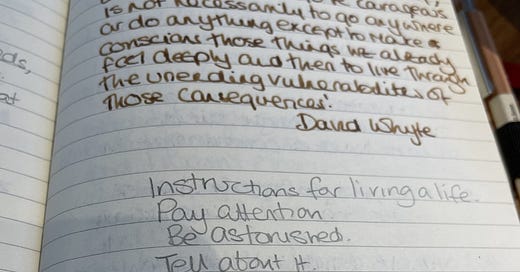 is not necessarily to go anywhere
or do anything except to make
conscious those things we already
feel deeply and then to live through
the unending vulnerabilities of
those consequences.'
David Whyte
Instructions for living a life.
Pay attention
Be astonished.
Tell about it.